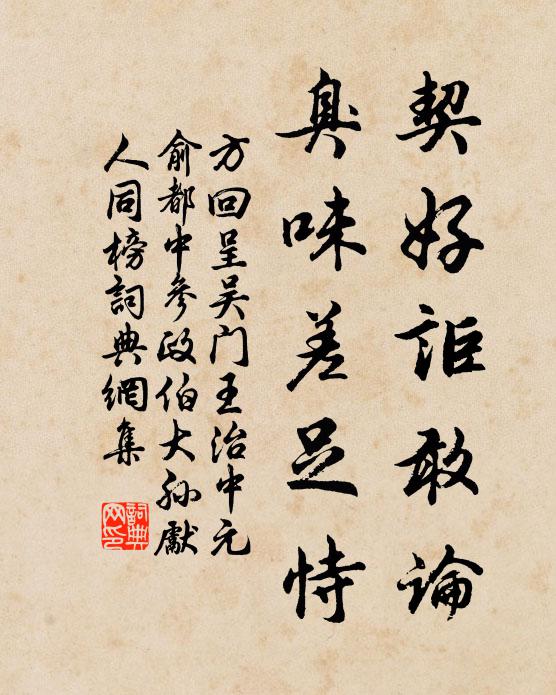 契好詎敢論
臭味差足恃
方回呈吴门王治中元
俞都中參政伯大孙獻
人同榜詞典網集
詞典网印